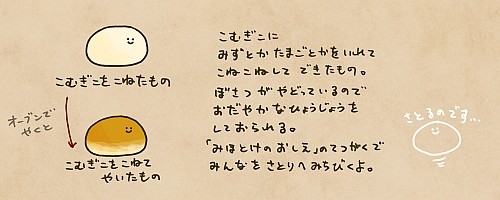 こむぎこをこねたもの
オーブンで
やくと
こむぎこをこねて
やいたもの
こむぎこに
みずとか たまごとかをいれて
こねこねして できたもの。
ぼさつ がやどっているので
おだやかなひょうじょうを
しておられる。
「みほとけのおしえ」のてつがくで
みんなをさとりへみちびくよ。
さとるのです…